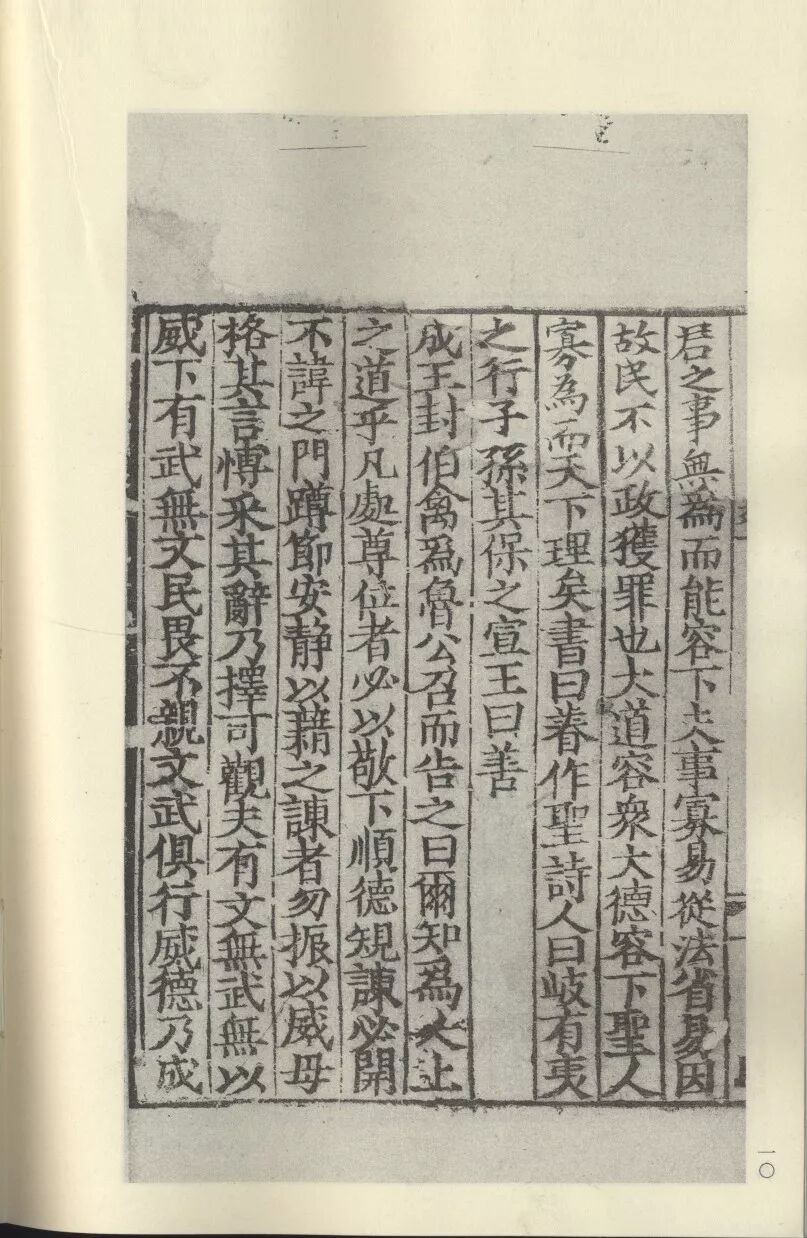 君之事無為而能容下夫事寡易從法省易因
故民不以政獲罪也大道容衆大德容下聖人
寡為而天下理矣書曰睿作聖詩人曰岐有夷
之行子孫其保之宣王曰善
成王封伯禽爲魯公召而告之曰爾知為人上
之道乎凡處尊位者必以敬下順德規諫必開
不諱之門蹲節安静以藉之諫者勿振以威毋
格其言愽采其辭乃擇可觀夫有文無武無以
威下有武無文民畏不親文武俱行威德乃成
一〇